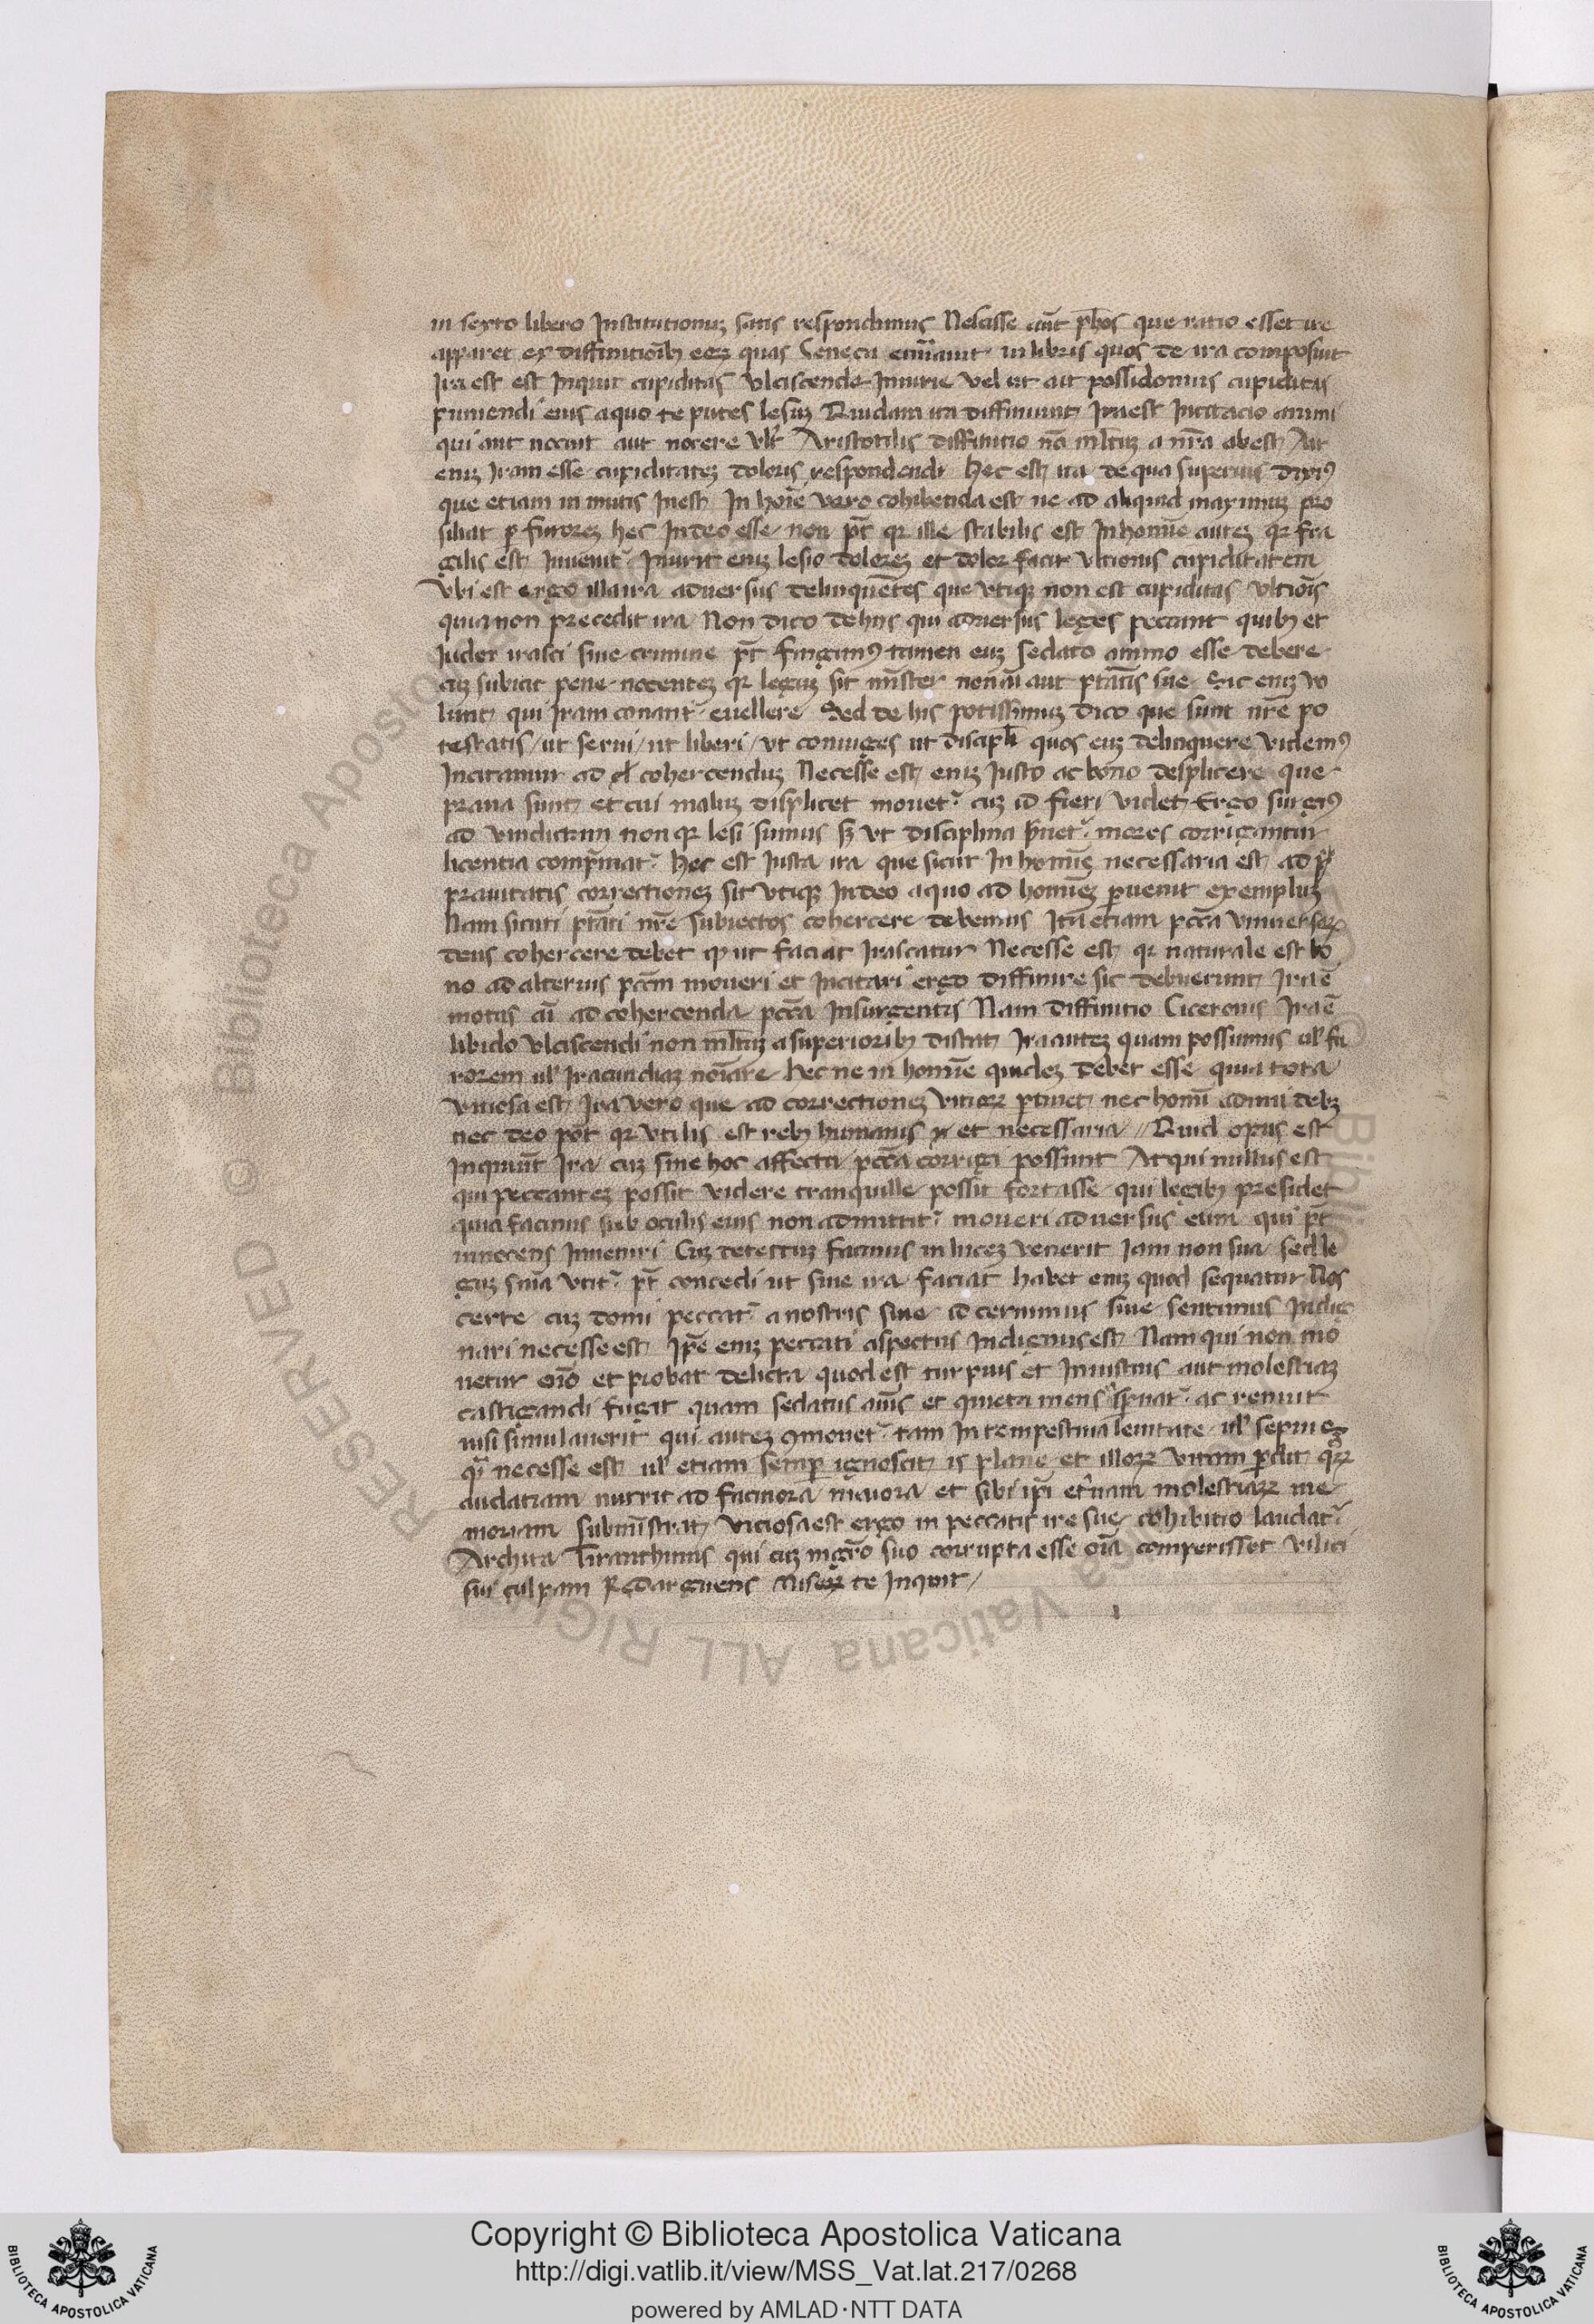 in sexto libero Institutionuȝ satis respondimus Nescisse aūt ph̄os que ratio esset ire
apparet ex diffinitioīb eoꝝ quas Seneca enūauit in libris quos de ira composuit
Ira est est Inquit cupiditas Vlciscende Iniurie vel ut ait possidonius cupiditas
puniendi eius a quo te putes lesuȝ Quidam ita diffiniunt Ira est Incitacio animi
qui aut nocuit aut nocere vlt Aristotilis diffinitio nō ml̄tuȝ a nr̄a abest Ait
eniȝ Iram esse cupiditateȝ doloris respondendi hec est ira de qua superius dixiꝰ
que etiam in mutis Inest In hoīe vero cohibenda est ne ad aliquid maximuȝ pro
siliat ꝑ furoreȝ hec In deo esse non pt̄ qꝛ ille stabilis est In homīe auteȝ qꝛ fra
gilis est Inuenit᷑ Inurit eniȝ lesio doloreȝ et dolor facit vltionis cupiditatem
Vbi est ergo illa ira aduersus delinquētes que vtiqꝫ non est cupiditas vltiōis
quia non precedit ira Non dico de hiis qui aduersus leges peccant quibꝫ et
Iudex irasci sine crimine pt̄ fingamꝰ tamen euȝ sedato animo esse debere
cuȝ subicit pene nocenteȝ qꝛ leguȝ sit mīster non aī aut ptātis sue Sic eniȝ vo
lunt qui Iram conant᷑ euellere Sed de his potissimuȝ dico que sunt nr̄e po
testatis / ut serui / ut liberi / vt coniuges ut discipl̄i quos cuȝ delinquere videmꝰ
Incitamur ad cohercenduȝ Necesse est eniȝ Iusto ac bono desplicere que
praua sunt et cui maluȝ displicet mouet᷑ cuȝ id fieri videt Ergo surgimꝰ
ad vindictam non qꝛ lesi sumus sꝫ vt disciplina ꝑuet᷑ mores corrigantur
licentia comp̄mat᷑ hec est Iusta ira que sicut In homīe necessaria est ad
prauitatis correctioneȝ sit vtiqꝫ In deo a quo ad homīeȝ ꝑuenit exempluȝ
Nam sicuti ptāti nr̄e subiectos cohercere debemus Ita etiam pctā vniuersoꝝ
deus cohercere debet qd ut faciat Irascatur Necesse est qꝛ naturale est bo
no ad alterius pctm̄ moueri et Incitari ergo diffinire sic debuerunt Ira ē
motus aī ad cohercenda pctā Insurgentis Nam diffinitio Ciceronis Ira ē
libido vlciscendi non ml̄tuȝ a superioribꝫ distat Ira auteȝ quam possumus ul̄ fu
rorem ul̄ Iracundiaȝ noīare hec ne in homīe quideȝ debet esse quia tota
vitiosa est Ira vero que ad correctioneȝ vitioꝝ ꝑtinet nec homī adimi debꝫ
nec deo pōt qꝛ vtilis est rebꝫ humanis et necessaria // Quid opus est
Inquiūt Ira cuȝ sine hoc affectu pctā corrigi possunt Atqui nullus est
qui peccanteȝ possit videre tranquille possit fortasse qui legibꝫ presidet
quia facinus sub oculis eius non admittit᷑ moueri aduersus eum qui pt̄
innocens Inueniri Cuȝ detectuȝ facinus in luceȝ venerit Iam non sua sed le
guȝ snīa vtit᷑ pt̄ concedi ut sine ira faciat habet eniȝ quod sequatur Nos
certe cuȝ domi peccat᷑ a nostris siue id cernimus siue sentimus Indig
nari necesse est Ip̄e eniȝ peccati aspectus Indignus est Nam qui non mo
uetur oīo et probat delicta quod est turpius et Iniustius aut molestiaȝ
castigandi fugit quam sedatus aīus et quieta mens spnat᷑ ac renuit
nisi simulauerit qui auteȝ ꝯmouet᷑ tam Intempestiua lenitate ul̄
necesse est ul̄ etiam semꝑ ignoscit is plane et illoꝝ vitam ꝑdit qꝛꝝ
audatiam nutrit ad facinora maiora et sibi ip̄i et̄nam molestiaꝝ me
moriam submīstrat viciosa est ergo in peccatis ire sue cohibitio laudat᷑
Archita Tiranthinus qui cuȝ in agro suo corrupta esse oīa comperisset vilici
sui culpam Redarguens Miseꝝ te Inquit /
Copyright © Biblioteca Apostolica Vaticana
http://digi.vatlib.it/view/MSS_Vat.lat.217/0268
powered by AMLAD·NTT DATA
BIBLIOTECA APOSTOLICA VATICANA
BIBLIOTECA APOSTOLICA VATICANA